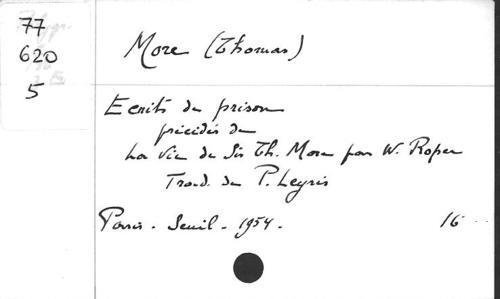 77
620
5
More (Thomas)
Ecrits de prison
précédés de
La Vie de Sir Th. More par W. Roper
Trad. de P. Leyris
Paris - Seuil - 1954 -
16